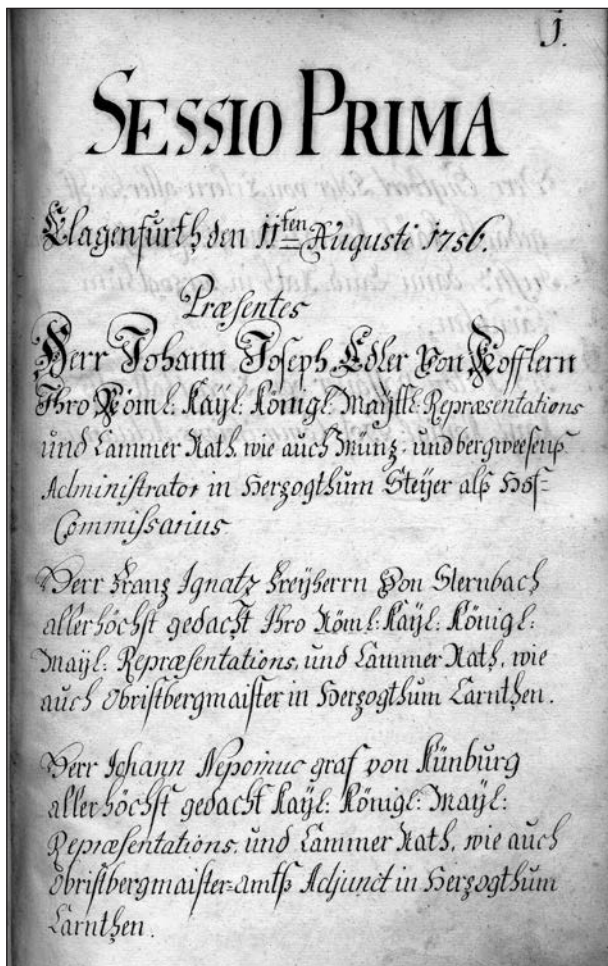 1.
SESSIO PRIMA
Clagenfurth den 11ten Augusti 1756.
Præsentes
Herr Johann Joseph Edler von Kofflern
Ihro Röml: Kaÿl: Königl: Maÿtt: Repræsentations
und Cammer Rath, wie auch Münz- und bergweesens
Administrator in Herzogthum Steÿer alß Hof-
Commissarius.
Herr Franz Ignatz Freÿherrn von Sternbach
allerhöchst gedacht Ihro Röml: Kaÿl: Königl:
Maÿl: Repræsentations, und Cammer Rath, wie
auch Obristbergmaister in Herzogthum Carnthen.
Herr Johann Nepomuc graf von Künburg
allerhöchst gedacht Kaÿl: Königl: Maÿl:
Repræsentations, und Cammer Rath, wie auch
Obristbergmaister=amtß Adjunct in Herzogthum
Carnthen.